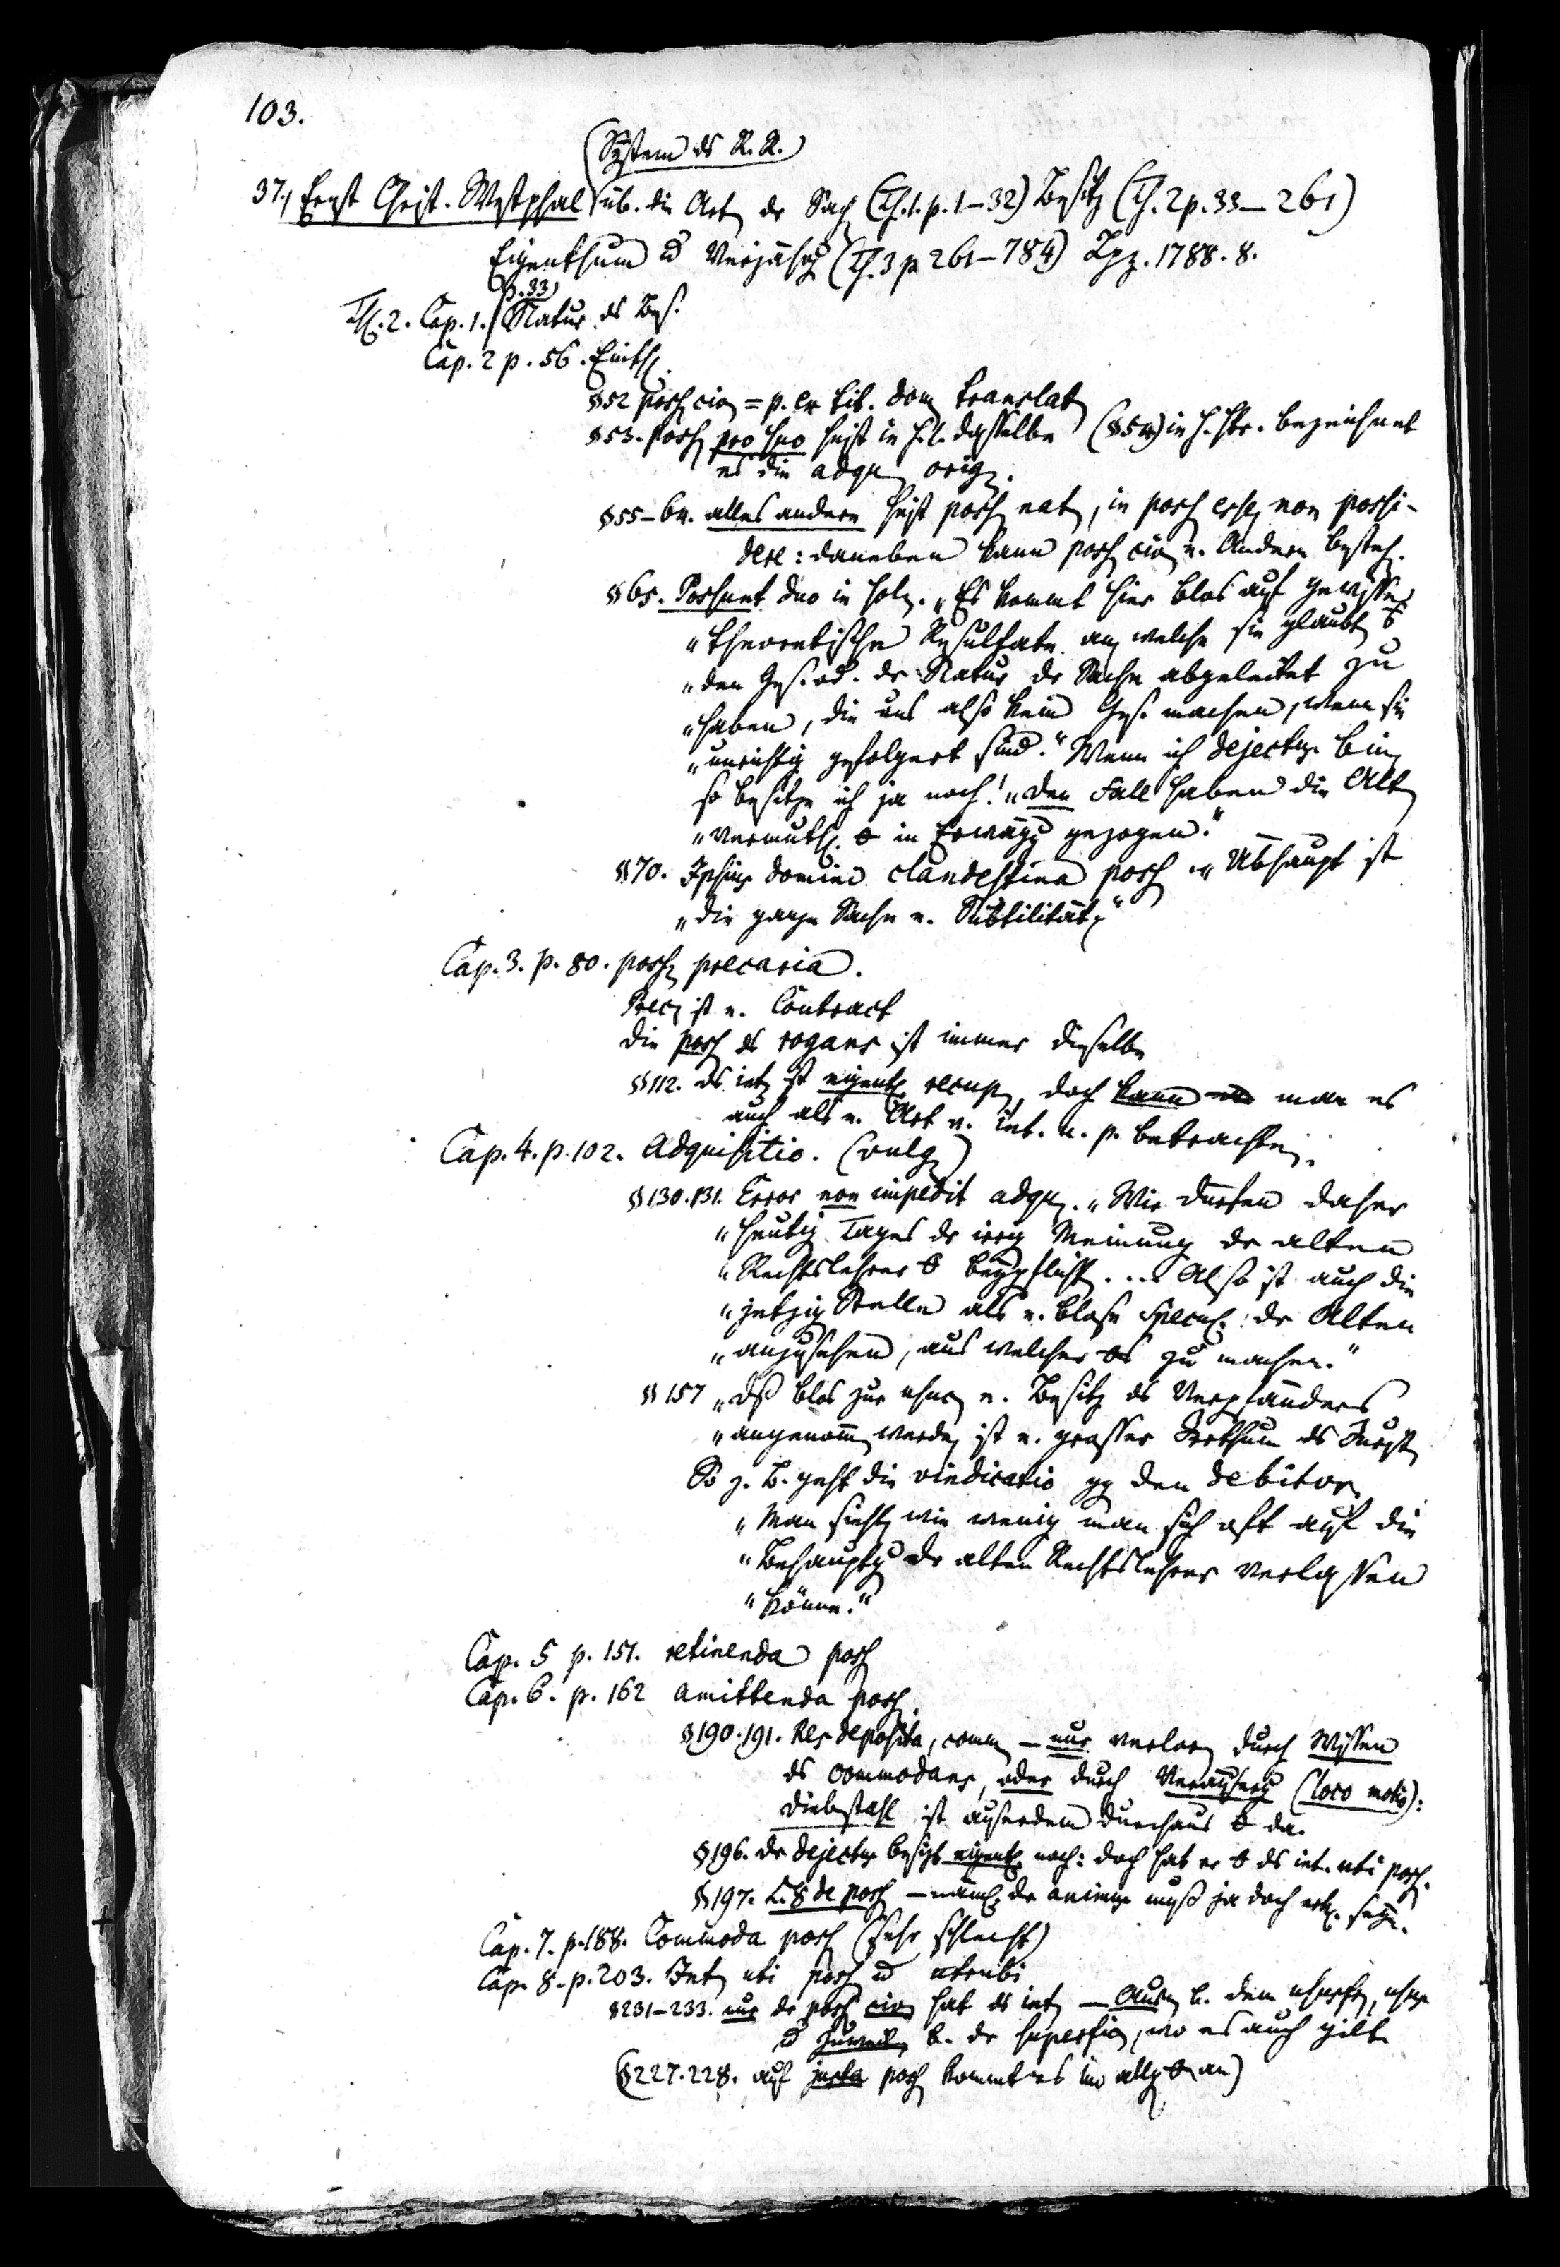 103.
(System ds R. R.)
37., Ernst Christ. Westphal üb. die Art der Sach (Th. 1. p. 1-32) Besitz (Th. 2 p. 33-261)
Eigenthum u Verjährg (Th. 3 p 261-784) Lpz. 1788. 8.
p. 33
Th. 2. Cap. 1. Natur ds Bes.
Cap. 2 p. 56. Einth.
§ 52 poss civ = p. ex tit. dom translat
§ 53. poss pro suo heist in h. l. dasselbe (§ 54) in h. Str. bezeichnet
es die adqu orig.
§ 55-64. alles andere heist poss nat, in poss esse, non possi-
dere: daneben kann poss civ e. Andern besteh.
§ 65. Possunt duo in sol. „Es kommt hier blos auf gewisse
„theoretische Resultate an, welche sie glaubt
„den Ges. od. der Natur der Sache abgeleitet zu
„haben, die uns also kein Ges. machen, wenn sie
„unrichtig gefolgert sind." Wenn ich dejectus bin
so besitze ich ja noch! „den Fall haben die Alt
„vermuthl. in Erwägg gezogen."
§ 70. Ipsius domini clandestina poss. „Überhaupt ist
„die ganze Sache e. Subtilität."
Cap. 3. p. 80. poss precaria.
Prec ist e. Contract
die poss ds rogans ist immer dieselbe
§ 112. ds int ist eigentl recup, doch kann man es
auch als e. Art v. int. u. p. betrachten.
Cap. 4. p. 102. Adquisitio. (vulg)
§ 130. 131. Error non impedit adqu. „Wir dürfen daher
„heutig Tages der irrig Meinung der alten
„Rechtslehrer beypflicht. ... Also ist auch die
„jetzig Stelle als e. blose Specul. der Alten
„anzusehen, aus welcher zu machen."
§ 157 „dß blos zur usuc e. Besitz ds Verpfänders
„angenom werde, ist e. grosser Irrthum ds Jurist
So z. B. geht die vindicatio gg den debitor.
„Man sieht, wie wenig man sich oft auf die
„Behauptg der alten Rechtslehrer verlassen
„könne."
Cap. 5 p. 151. retinenda poss
Cap. 6. p. 162 amittenda poss.
§ 190. 191. Res deposita, comm - nur verlor durch Wissen
ds commodans, oder durch Veräußerg (loco motis):
Diebstahl ist außerdem durchaus da.
§ 196. der dejectus besizt eigentl noch: doch hat er ds int. uti poss.
§ 197. L. 8 de poss - nämlich der animus muß ja doch seyn.
Cap. 7. p. 188. Commoda poss (sehr schlecht)
Cap. 8. p. 203. Int uti poss u utrubi
§ 231-233. nur der poss civ hat ds int - Ausn b. dem usufr, usus
u b. der superfic, wo es auch gilt
(§ 227. 228. auf justa poss kommt es im allg an)